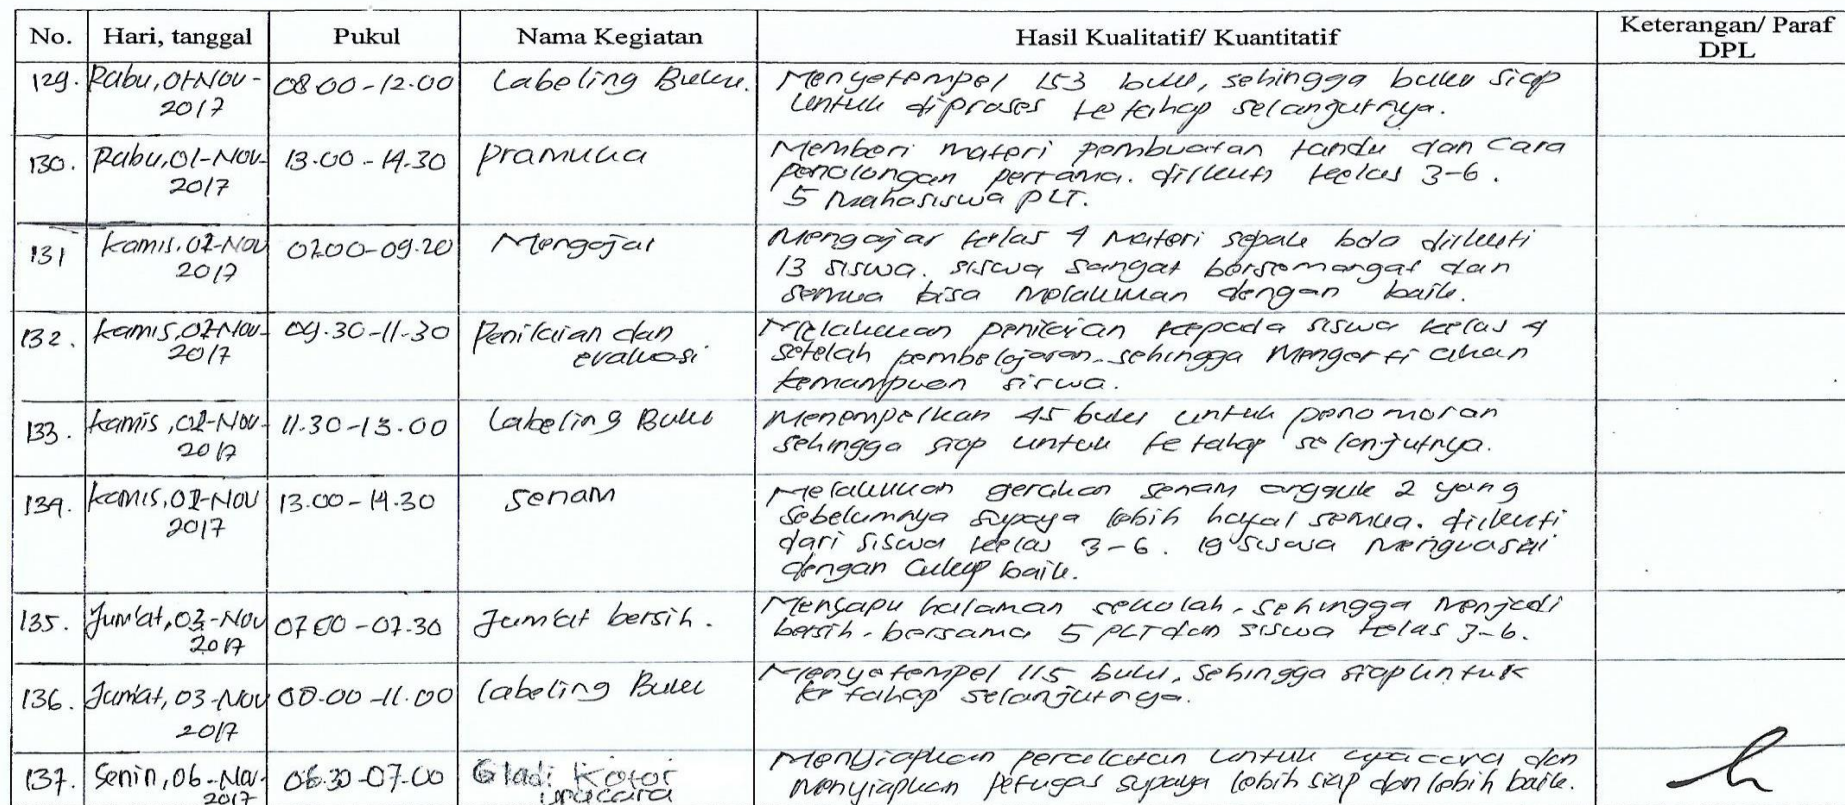 No. Hari, tanggal Pukul Nama Kegiatan Hasil Kualitatif/ Kuantitatif Keterangan/ Paraf DPL
129. Rabu, 01-Nov-2017 08.00-12.00 Labeling Buku. Menyetempel 153 buku, sehingga buku siap
untuk diproses ke tahap selanjutnya.
130. Rabu, 01-Nov-2017 13.00-14.30 Pramuka Memberi materi pembuatan tandu dan cara
penolongan pertama. diikuti kelas 3-6.
5 Mahasiswa PLT.
131 Kamis, 02-Nov 2017 07.00-09.20 Mengajar Mengajar kelas 4 Materi sepak bola diikuti
13 siswa. siswa sangat bersemangat dan
semua bisa melakukan dengan baik.
132. Kamis, 02-Nov-2017 09.30-11.30 Penilaian dan evaluasi Melakukan penilaian kepada siswa kelas 4
setelah pembelajaran. sehingga Mengerti akan
kemampuan siswa.
133. Kamis, 02-Nov-2017 11.30-13.00 Labeling Buku Menempelkan 45 buku untuk penomoran
sehingga siap untuk ke tahap selanjutnya.
134. Kamis, 02-Nov 2017 13.00-14.30 Senam Melakukan gerakan senam angguk 2 yang
sebelumnya supaya lebih hafal semua. diikuti
dari siswa kelas 3-6. 19 siswa menguasai
dengan cukup baik.
135. Jum'at, 03-Nov 2017 07.00-07.30 Jum'at bersih. Menyapu halaman sekolah, sehingga menjadi
bersih. bersama 5 PLT dan siswa kelas 3-6.
136. Jum'at, 03-Nov 2017 08.00-11.00 Labeling Buku Menyetempel 115 buku, sehingga siap untuk
ke tahap selanjutnya.
137. Senin, 06-Nov-2017 06.30-07.00 Gladi Kotor upacara Menyiapkan peralatan untuk upacara dan
menyiapkan petugas supaya lebih siap dan lebih baik.